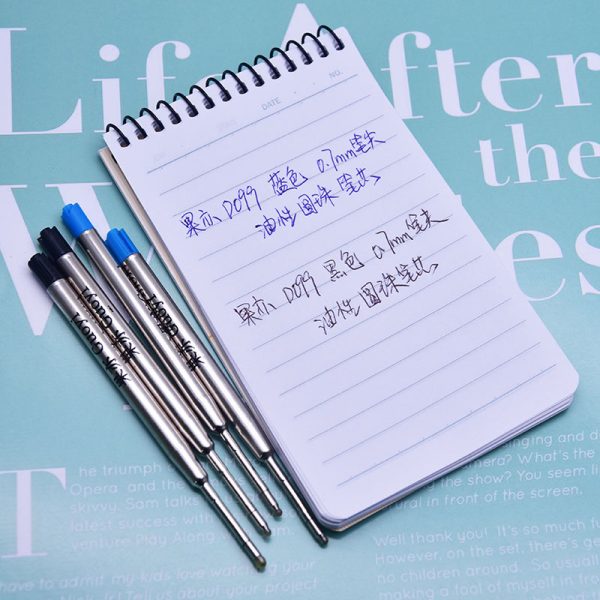 Life After
the
DATE NO.
果亦 D099 蓝色 0.7mm笔尖
油性圆珠笔芯
果亦 D099 黑色 0.7mm笔尖
油性圆珠笔芯
果亦·Guoyi
果亦·Guoyi
The triumph
Opera and the
skivvy. Sam talks
latest success with
venture Play Along
have to admit, my kids love watching your
about your project
What's the
the show? You seem
in front of the screen.
Well thank you! It's so much
However, on the set, there's
no children around. So
making a fool of myself in